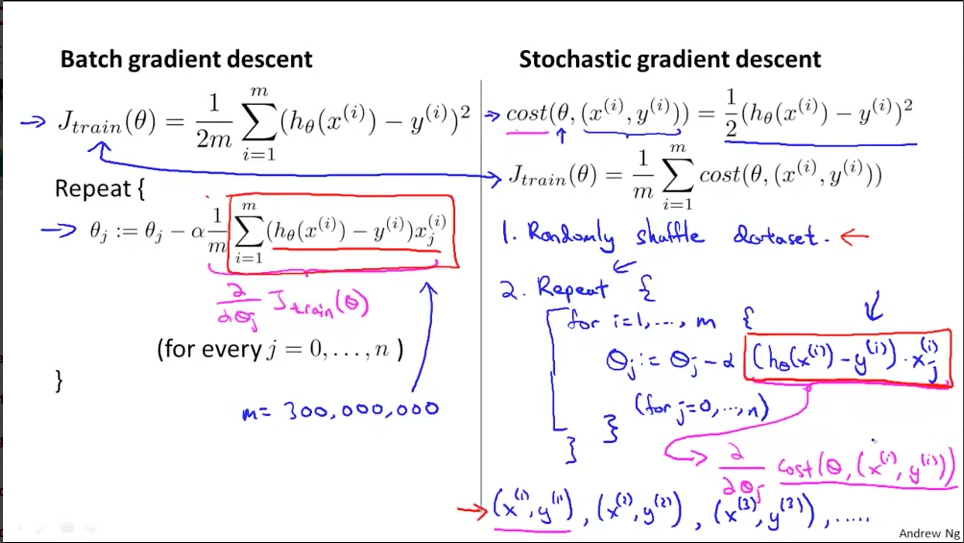 Batch gradient descent
J_train(θ) = 1/2m ∑_{i=1}^{m} (h_θ(x^(i)) − y^(i))²
Repeat {
θ_j := θ_j − α 1/m ∑_{i=1}^{m} (h_θ(x^(i)) − y^(i))x_j^(i)
∂/∂θ_j J_train(θ)
(for every j = 0, . . . , n )
}
m= 300,000,000
Stochastic gradient descent
cost(θ, (x^(i), y^(i))) = 1/2 (h_θ(x^(i)) − y^(i))²
J_train(θ) = 1/m ∑_{i=1}^{m} cost(θ, (x^(i), y^(i)))
1. Randomly shuffle dataset.
2. Repeat {
for i=1,..., m {
θ_j := θ_j − α (h_θ(x^(i)) − y^(i)) · x_j^(i)
(for j=0,...,n)
}
}
∂/∂θ_j cost(θ, (x^(i), y^(i)))
(x^(1), y^(1)), (x^(2), y^(2)), (x^(3), y^(3)), .....
Andrew Ng